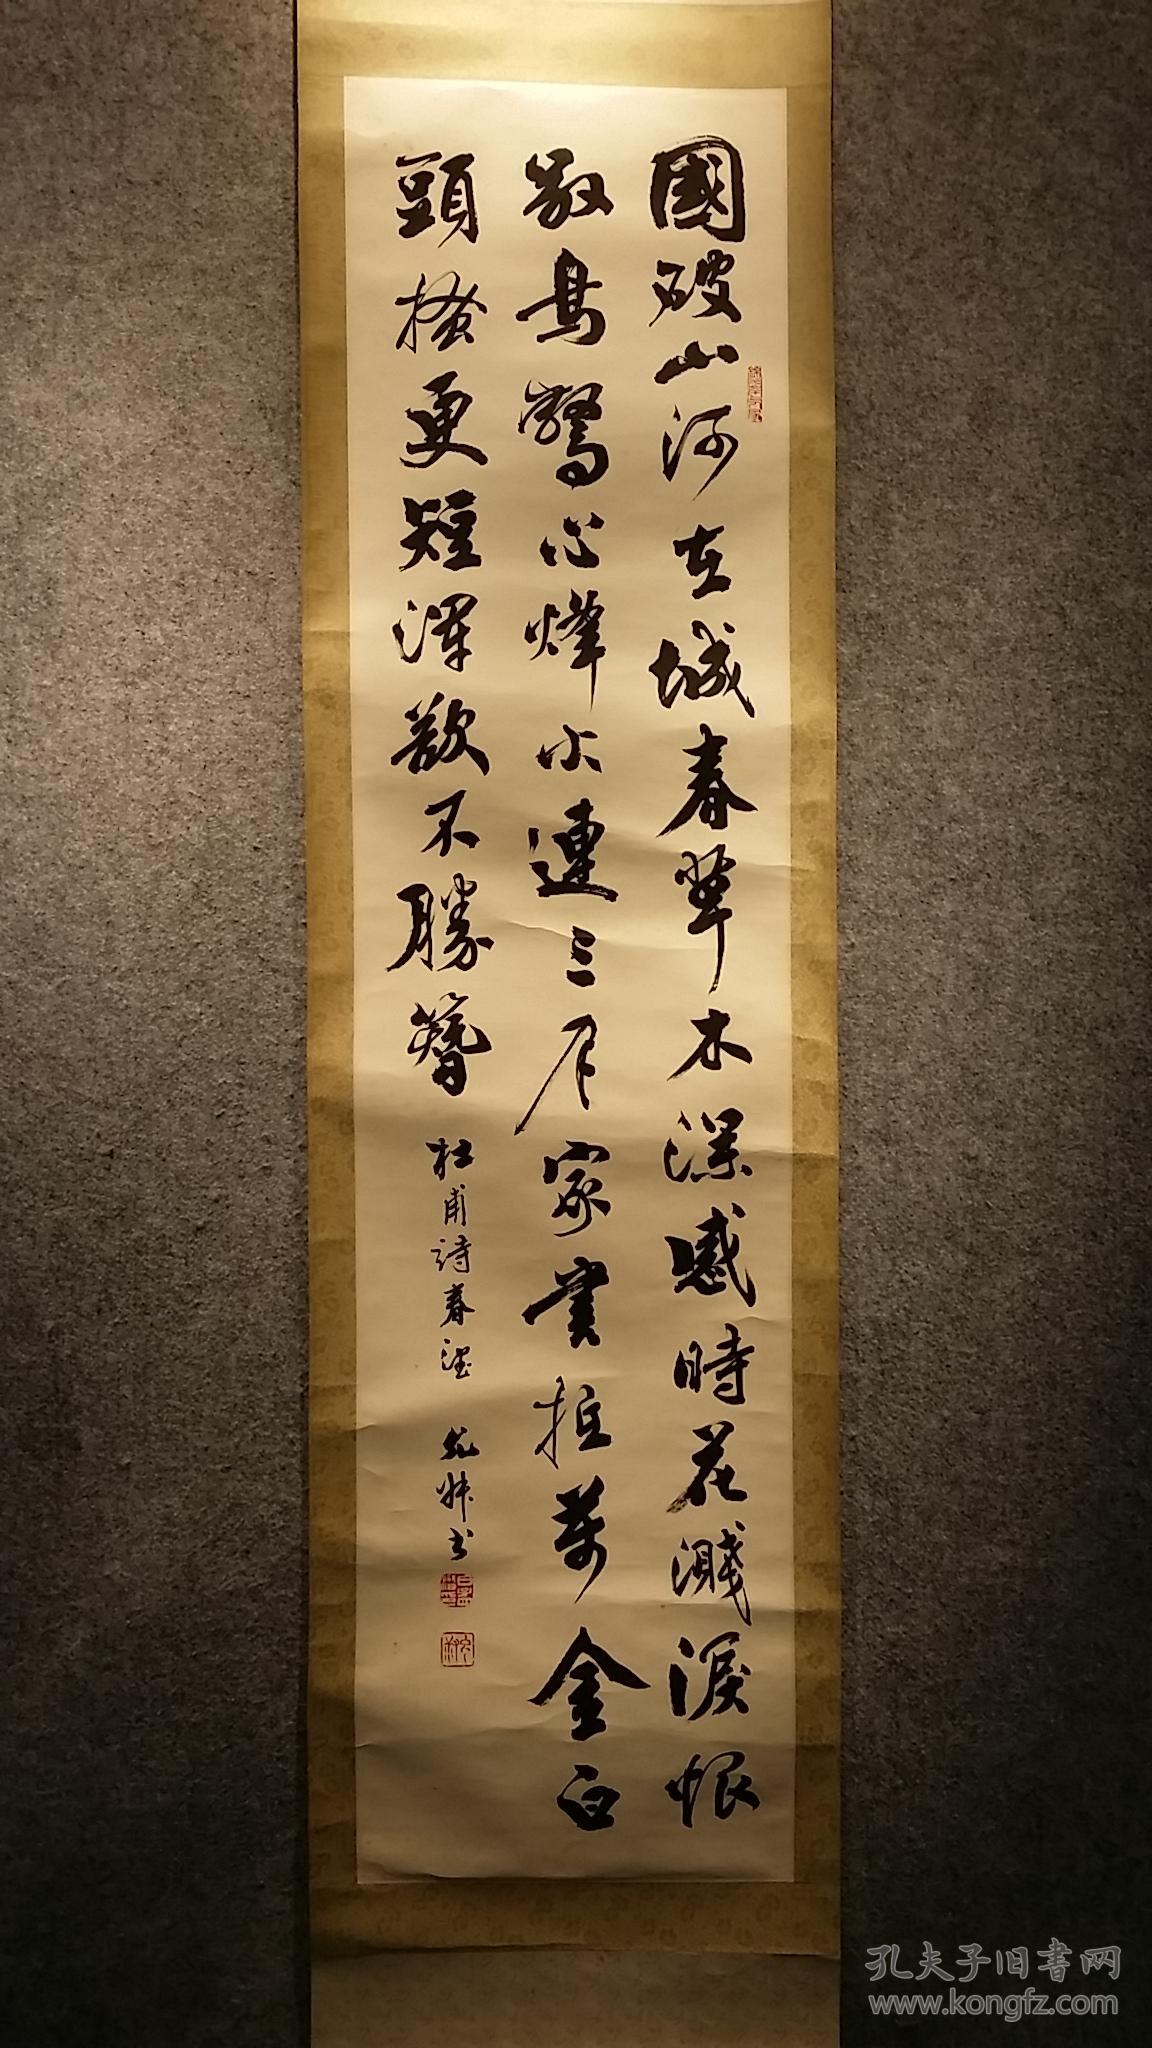 國破山河在城春草木深感時花濺淚恨
鳥驚心烽火連三月家書抵萬金白
頭搔更短渾欲不勝簪
杜甫詩春望 书
孔夫子旧書网
www.kongfz.com